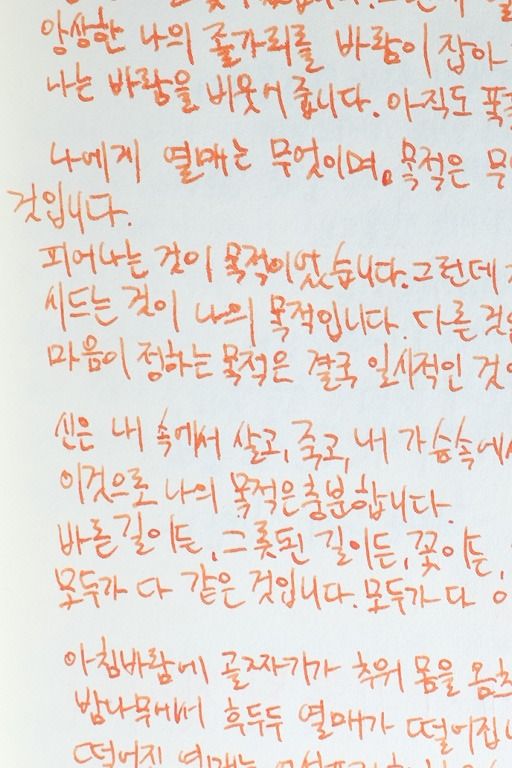 앙상한 나의 줄가리를 바람이 잡아
나는 바람을 비웃어 줍니다. 아직도
나에게 열매는 무엇이며, 목적은
것입니다.
피어나는 것이 목적이었습니다. 그런데
시드는 것이 나의 목적입니다. 다른
마음이 정하는 목적은 결국 일시적인
신은 내 속에서 살고, 죽고, 내 가슴속에서
이것으로 나의 목적은 충분합니다.
바른 길이든, 그릇된 길이든, 꽃이든,
모두가 다 같은 것입니다. 모두가 다
아침바람에 골짜기가 추위 몸을
밤나무에서 후두두 열매가 떨어집니
떨어지